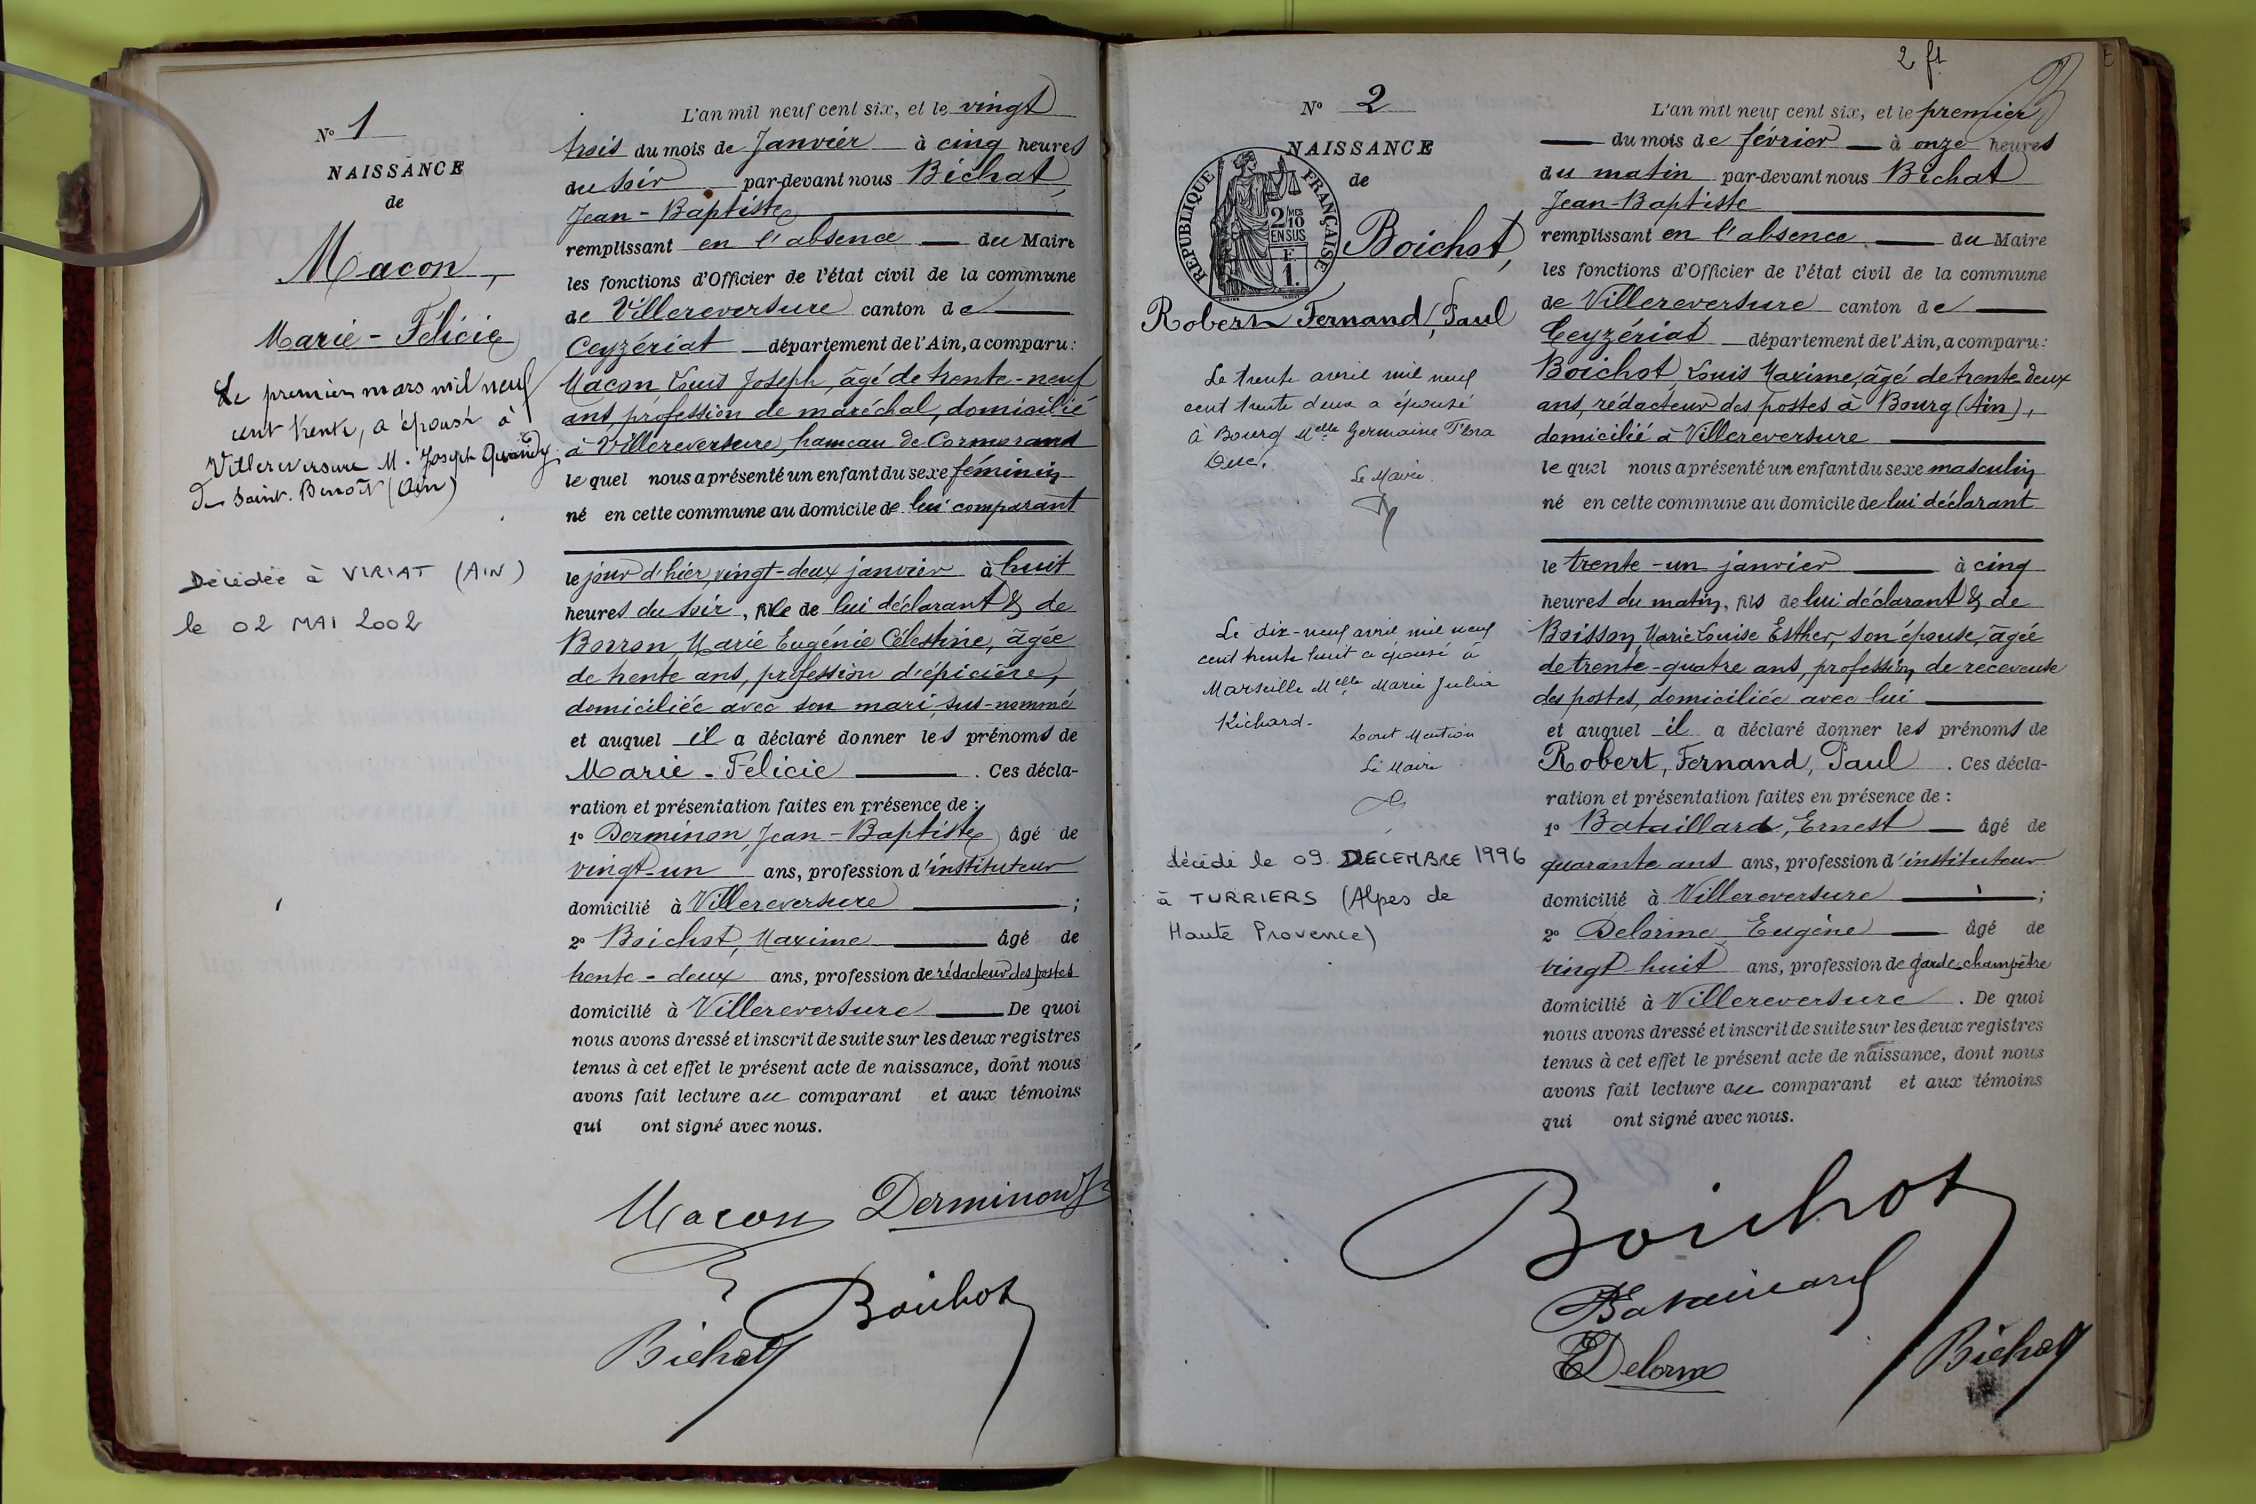 N° 1
NAISSANCE
de
Macon,
Marie-Félicie
Le premier mars mil neuf
cent trente, a épousé à
Villereversure M. Joseph
de Saint-Benoît (Ain)
Décédée à VIRIAT (AIN)
le 02 MAI 2002
L'an mil neuf cent six, et le vingt
trois du mois de Janvier à cinq heures
du soir par-devant nous Bichat,
Jean-Baptiste
remplissant en l'absence du Maire
les fonctions d'Officier de l'état civil de la commune
de Villereversure canton de
Ceyzériat département de l'Ain, a comparu:
Macon Louis Joseph, âgé de trente-neuf
ans, profession de maréchal, domicilié
à Villereversure, hameau de Cormorand
le quel nous a présenté un enfant du sexe féminin
né en cette commune au domicile de lui comparant
le jour d'hier, vingt-deux janvier à huit
heures du soir, fille de lui déclarant & de
Borron, Marie Eugénie Célestine, âgée
de trente ans, profession d'épicière,
domiciliée avec son mari sus-nommé
et auquel il a déclaré donner les prénoms de
Marie-Félicie . Ces décla-
ration et présentation faites en présence de :
1° Derminon, Jean-Baptiste âgé de
vingt-un ans, profession d'instituteur
domicilié à Villereversure ;
2° Boichot, Maxime âgé de
trente-deux ans, profession de rédacteur des postes
domicilié à Villereversure De quoi
nous avons dressé et inscrit de suite sur les deux registres
tenus à cet effet le présent acte de naissance, dont nous
avons fait lecture au comparant et aux témoins
qui ont signé avec nous.
Macon Derminon
Boichot
Bichat
2 ft
N° 2
NAISSANCE
de
REPUBLIQUE FRANÇAISE
2 MES
10
EN SUS
F.
1.
Boichot,
Robert Fernand, Paul
Le trente avril mil neuf
cent trente deux a épousé
à Bourg Melle Germaine Flora
Le Maire.
Le dix-neuf avril mil neuf
cent trente huit a épousé à
Marseille Melle Marie Julia
Richard.
Dont Mention
Le Maire
décédé le 09 DECEMBRE 1996
à TURRIERS (Alpes de
Haute Provence)
L'an mil neuf cent six, et le premier
du mois de février à onze heures
du matin par-devant nous Bichat
Jean-Baptiste
remplissant en l'absence du Maire
les fonctions d'Officier de l'état civil de la commune
de Villereversure canton de
Ceyzériat département de l'Ain, a comparu:
Boichot, Louis Maxime, âgé de trente deux
ans, rédacteur des postes à Bourg (Ain),
domicilié à Villereversure
le quel nous a présenté un enfant du sexe masculin
né en cette commune au domicile de lui déclarant
le trente-un janvier à cinq
heures du matin, fils de lui déclarant & de
Boisson, Marie Louise Esther, son épouse, âgée
de trente-quatre ans, profession de receveuse
des postes, domiciliée avec lui
et auquel il a déclaré donner les prénoms de
Robert, Fernand, Paul . Ces décla-
ration et présentation faites en présence de :
1° Bataillard, Ernest âgé de
quarante ans ans, profession d'instituteur
domicilié à Villereversure ;
2° Delorme Eugène âgé de
vingt huit ans, profession de garde champêtre
domicilié à Villereversure . De quoi
nous avons dressé et inscrit de suite sur les deux registres
tenus à cet effet le présent acte de naissance, dont nous
avons fait lecture au comparant et aux témoins
qui ont signé avec nous.
Boichot
Bataillard
EDelorme
Bichat